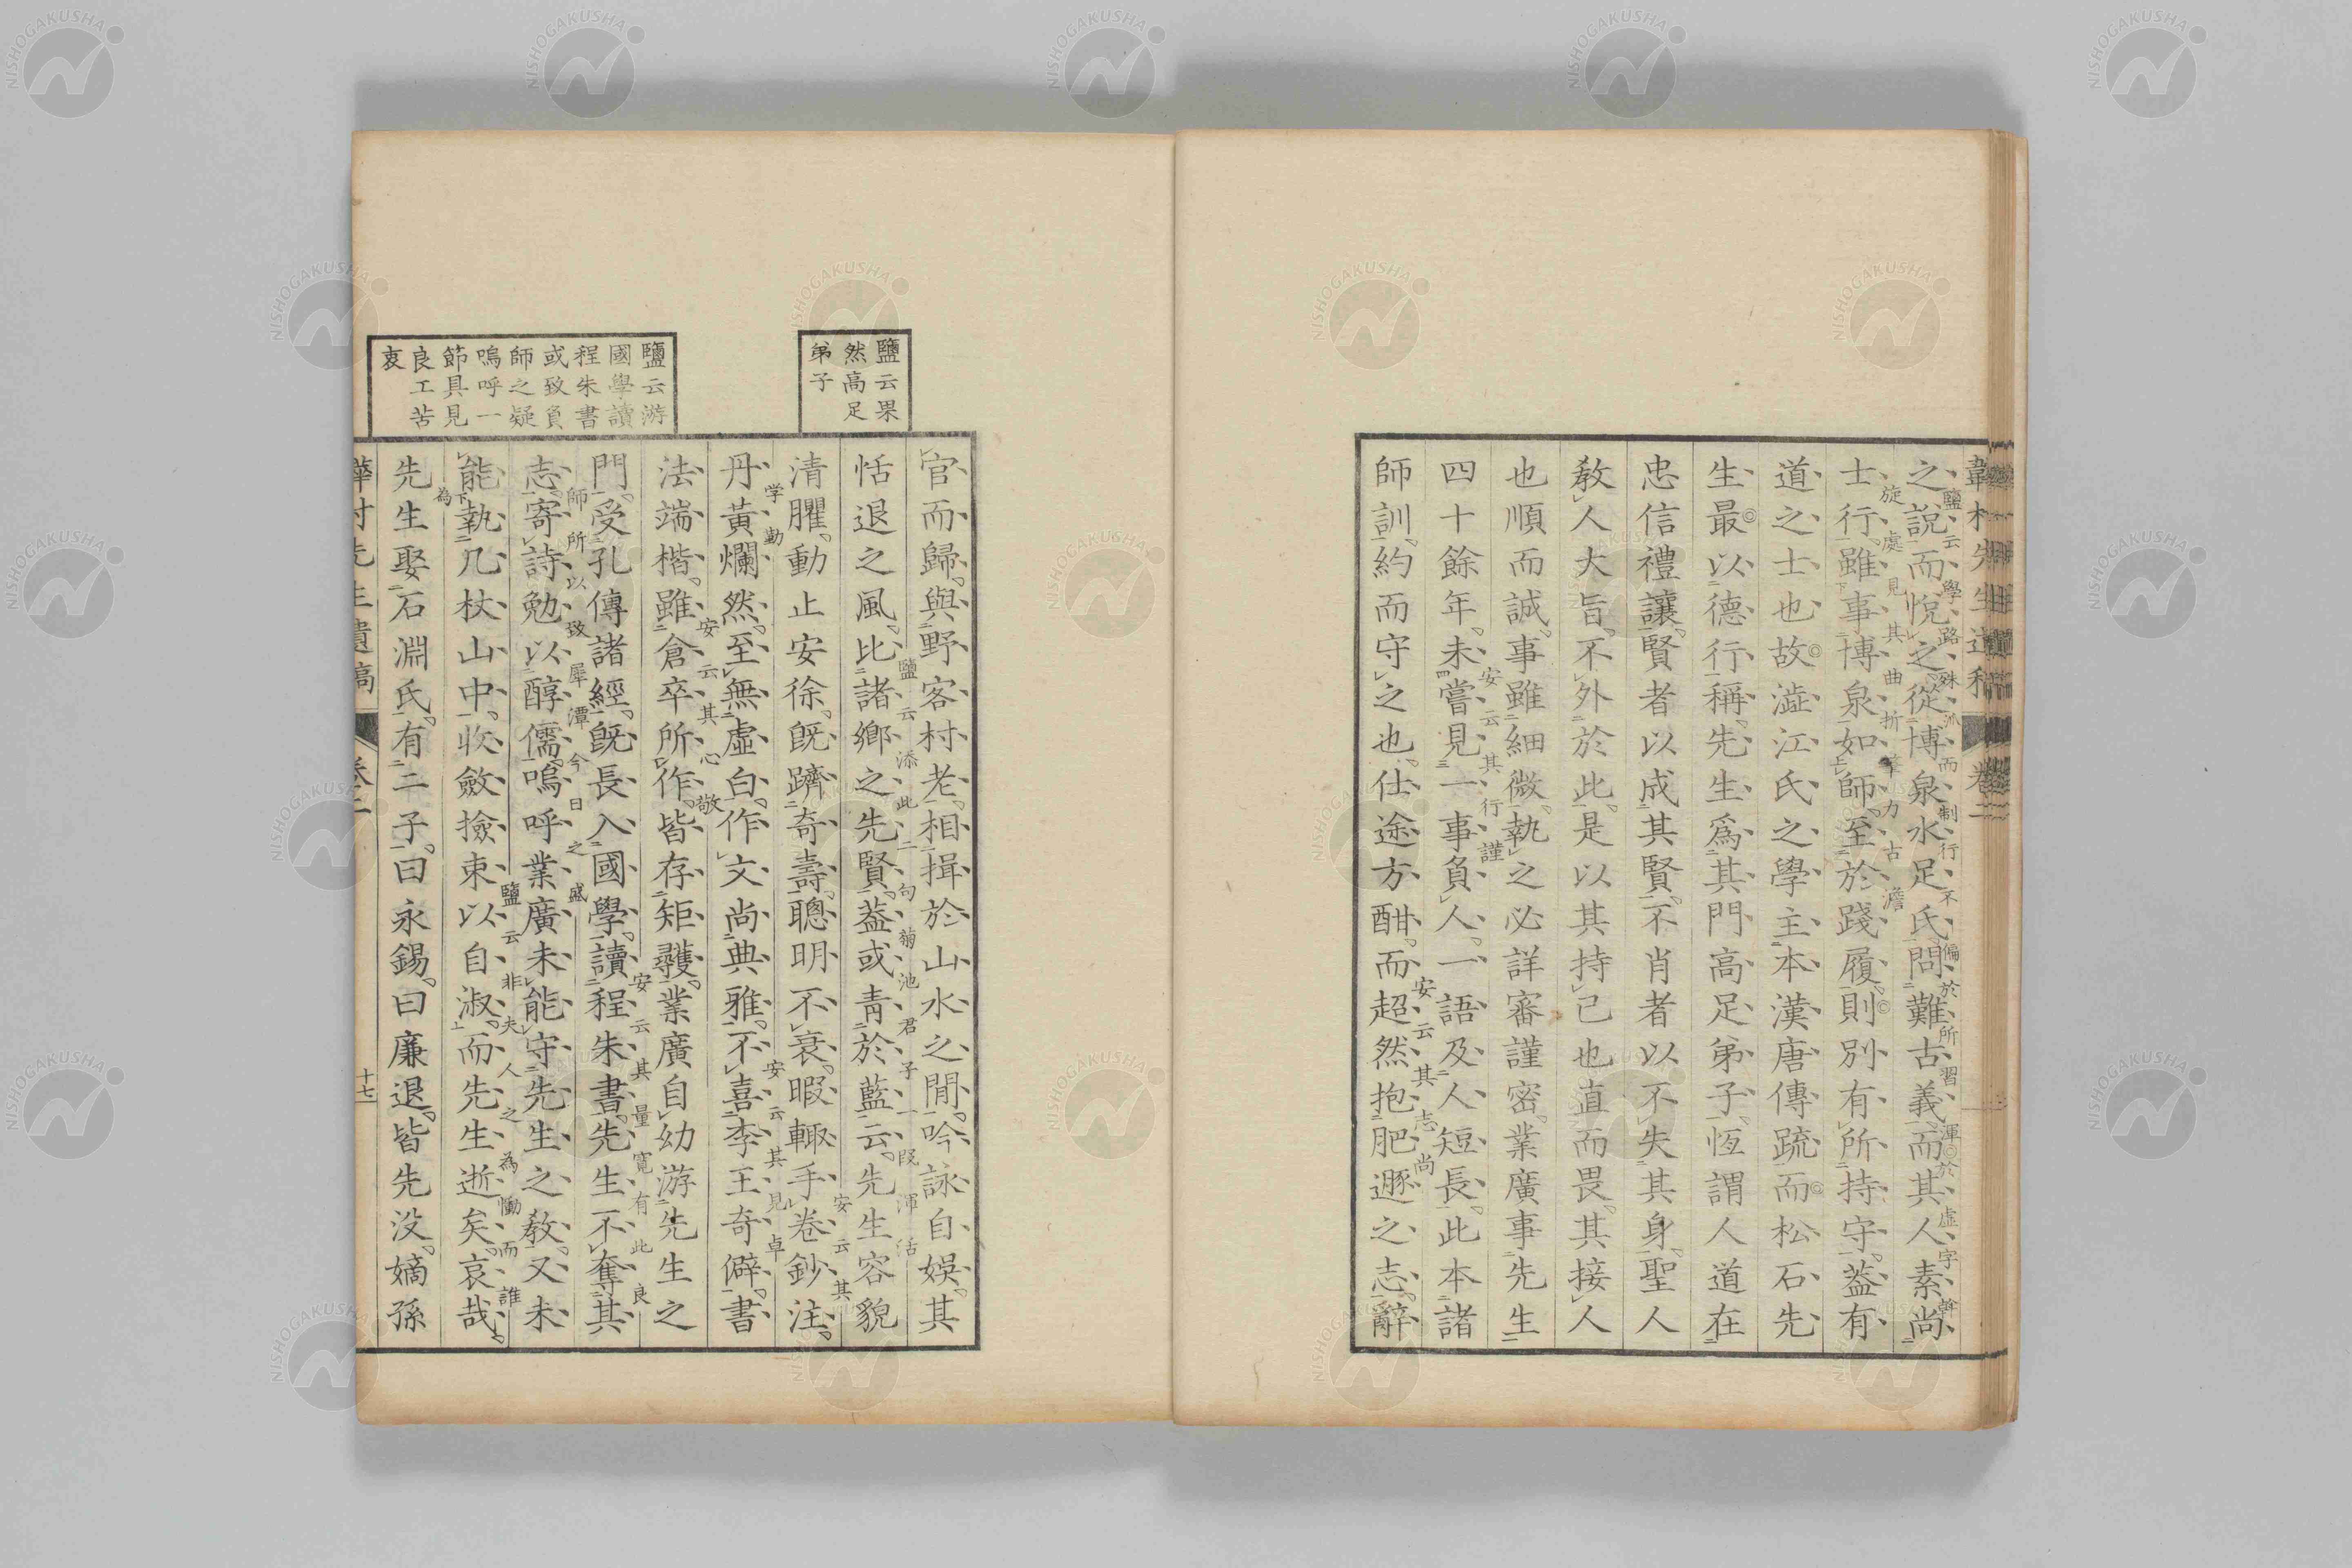 之說而悅之從博泉水足氏問難古義而其人素尚
鹽云學路殊派而制行不偏於所習渾於虛字斡
士行雖事博泉如師至於踐履則別有所持守蓋有
旋處見其曲折筆力古澹
道之士也故澁江氏之學主本漢唐傳疏而松石先
生最以德行稱先生爲其門高足弟子恆謂人道在
忠信禮讓賢者以成其賢不肖者以不失其身聖人
敎人大旨不外於此是以其持己也直而畏其接人
也順而誠事雖細微執之必詳審謹密業廣事先生
四十餘年未嘗見一事負人一語及人短長此本諸
安云其行謹
師訓約而守之也仕途方酣而超然抱肥遯之志辭
安云其志尚
鹽云果
然高足
弟子
官而歸與野客村老相揖於山水之閒吟詠自娛其
恬退之風比諸鄉之先賢蓋或靑於藍云先生容貌
鹽云添此二句菊池君子一段渾活
清臞動止安徐旣躋奇壽聰明不衰暇輙手卷鈔注
安云其
学勤
丹黃爛然至無虛白作文尚典雅不喜李王奇僻書
安云其見卓
法端楷雖倉卒所作皆存矩矱業廣自幼游先生之
安云其心敬
鹽云游
國學讀
程朱書
或致負
師之疑
嗚呼一
節具見
良工苦
衷
門受孔傳諸經旣長入國學讀程朱書先生不奪其
安云其量寬有此良
師所以致犀潭今日之盛
志寄詩勉以醇儒嗚呼業廣未能守先生之敎又未
能執几杖山中收斂撿束以自淑而先生逝矣哀哉
鹽云非夫人之為慟而誰
為
先生娶石淵氏有二子曰永錫曰廉退皆先沒嫡孫
先生遺稿
十七